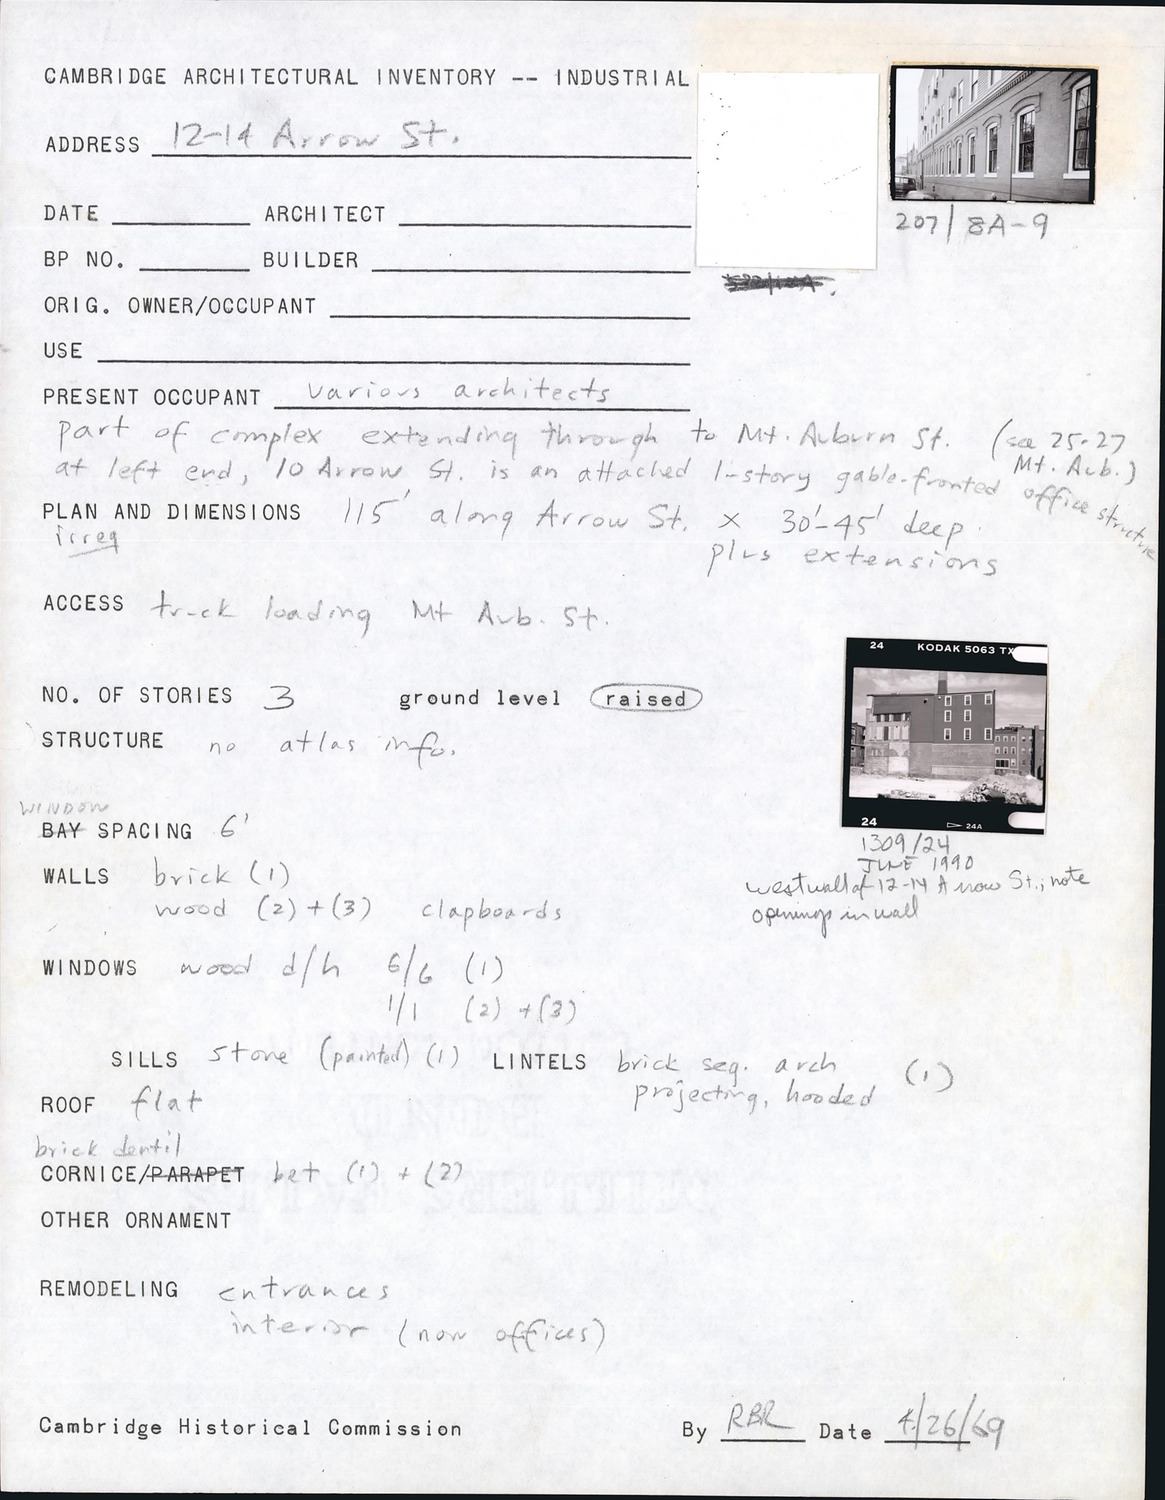 CAMBRIDGE ARCHITECTURAL INVENTORY -- INDUSTRIAL
ADDRESS 12-14 Arrow St.
207/8A-9
DATE ARCHITECT
BP NO. BUILDER
ORIG. OWNER/OCCUPANT
USE
PRESENT OCCUPANT various architects
part of complex extending through to Mt. Auburn St. (see 25-27 Mt. Aub.)
at left end, 10 Arrow St. is an attached 1-story gable-fronted office structure
PLAN AND DIMENSIONS 115' along Arrow St. x 30'-45' deep
irreg
plus extensions
ACCESS truck loading Mt Aub. St.
24 KODAK 5063 TX
NO. OF STORIES 3 ground level raised
STRUCTURE no atlas info.
24 24A
WINDOW
BAY SPACING 6'
1309/24
JUNE 1990
west wall of 12-14 Arrow St.; note
openings in wall
WALLS brick (1)
wood (2)+(3) clapboards
WINDOWS wood d/h 6/6 (1)
1/1 (2)+(3)
SILLS stone (painted) (1) LINTELS brick seg. arch (1)
projecting, hooded
ROOF flat
brick dentil
CORNICE/PARAPET bet (1) + (2)
OTHER ORNAMENT
REMODELING entrances
interior (now offices)
Cambridge Historical Commission By RBR Date 4/26/69